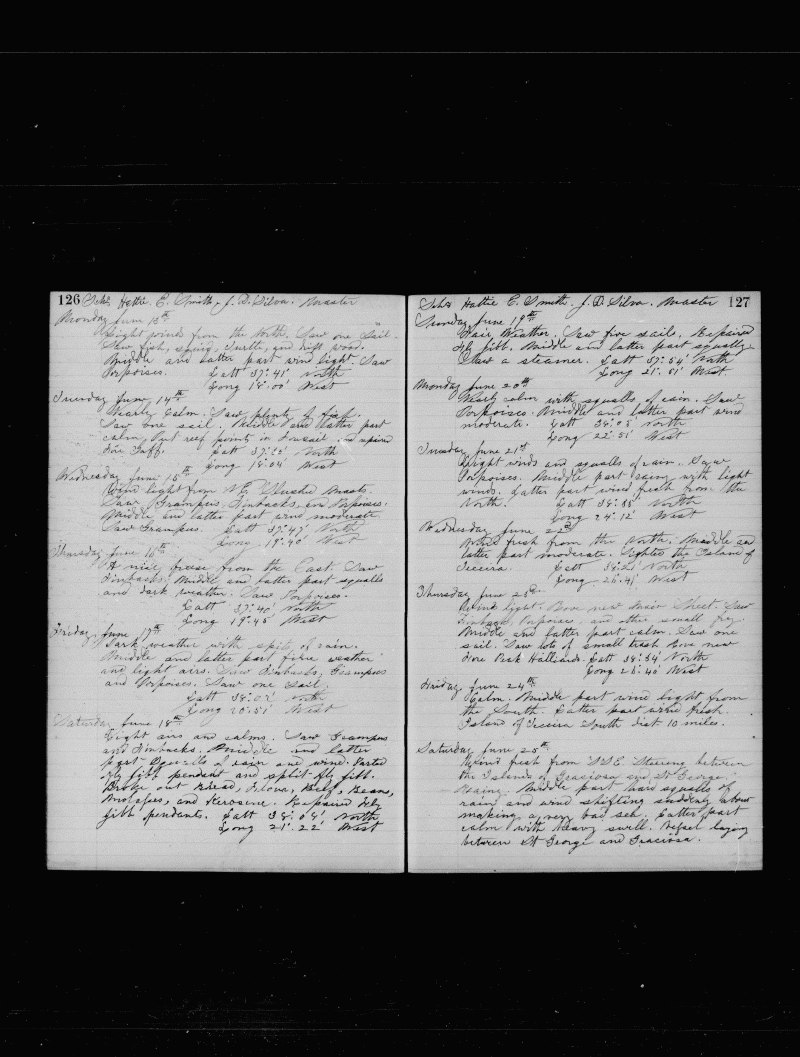 126 Schr Hattie E. Smith. J. D. Silva. Master
Monday June 13th
Light winds from the North. Saw one Sail.
Saw fish, turtle, and drift wood.
Middle and latter part wind light. Saw
Porpoises. Latt 37°.41' North
Long 18°.00' West
Tuesday June 14th
Nearly Calm. Saw plenty of fish.
Saw one sail. Middle and latter part
calm, Put reef points in
Fore Gaff. Latt North
Long 18°.04' West
Wednesday June 15th
Wind light from N.E. Slushed Masts.
Saw Grampus Finbacks, and Porpoises.
Middle and latter part wind moderate
Saw Grampus. Latt 37°.47' North
Long 19°.40' West
Thursday June 16th
A nice from the East. Saw
Finbacks. Middle and latter part squalls
and dark weather. Saw Porpoises.
Latt 37°.40' North
Long 19°.45' West
Friday June 17th
Dark weather with spits of rain.
Middle and latter part fine weather
and light airs. Saw Finbacks, Grampus
and Porpoises. Saw one sail.
Latt 38°.22' North
Long 20°.51' West
Saturday June 18th
Light airs and calms. Saw Grampus
and Finbacks. Middle and latter
part Squalls of rain and wind. Parted
fly jibb pendant and split fly jibb.
Broke out Bread, Flour, Beef, Beans,
Molasses, and Kerosene. Repaired fly
jibb pendants. Latt 38°.08' North
Long 21°.22' West
Schr Hattie E. Smith. J. D. Silva. Master 127
Sunday June 19th
Fair Weather. Saw five sail, Repaired
fly jibb. Middle and latter part squally
Saw a steamer. Latt 37°.54' North
Long 21°.51' West
Monday June 20th
Nearly calm with squalls of rain. Saw
Porpoises. Middle and latter part wind
moderate. Latt 38°.05' North
Long 22°.51' West
Tuesday June 21st
Light winds and squalls of rain. Saw
Porpoises. Middle part rainy with light
winds. Latter part wind fresh from the
North. Latt 38°.35' North
Long 24°.12' West
Wednesday June 22nd
Wind fresh from the North. Middle and
latter part moderate. Sighted the Island of
Terceira. Latt 38°.21' North
Long 26°.41' West
Thursday June 23rd
Wind light. Rove new Main Sheet. Saw
Finbacks, Porpoises, and other small fry.
Middle and latter part calm. Saw one
sail. Saw lots of small trash. Rove new
Fore Peak Halliards. Latt 38°.34' North
Long 26°.40' West
Friday June 24th
Calm. Middle part wind light from
the South. Latter part wind fresh.
Island of Terceira South dist 10 miles.
Saturday June 25th
Wind fresh from SSE Steering between
the Islands of Graciosa and St George.
Rainy. Middle part hard squalls of
rain and wind shifting suddenly about
making a very bad sea. Latter part
calm with heavy swell. Vessel laying
between St George and Graciosa.